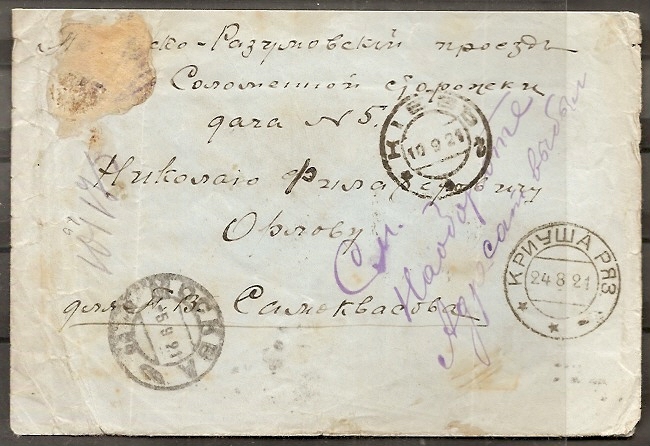 ско-Разумовский проезд
Соломенной сторожки
дача N 5.
Николаю Филаретовичу
Орлову
для М. В. Самоквасова
См.
На обороте
Адресат выбыл
10 9 21
КРИУША РЯЗ
24 8 21
МОСКВА
5 9 21